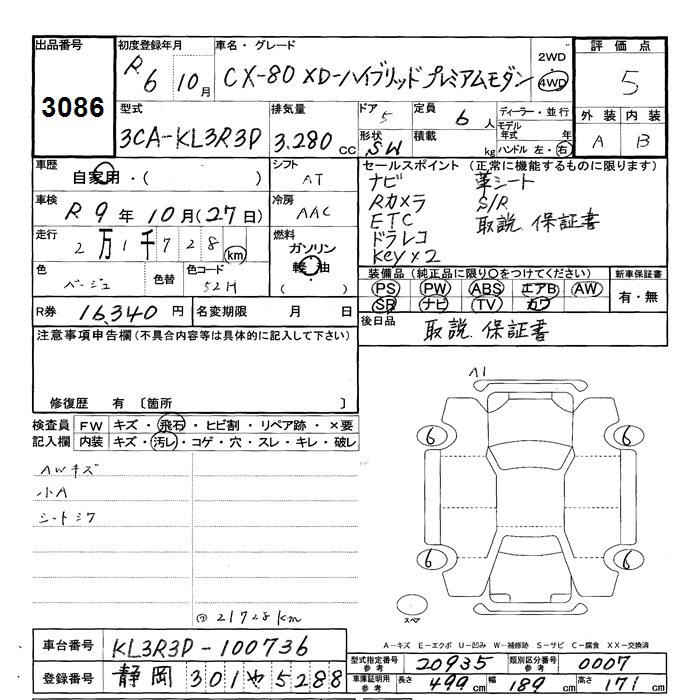 出品番号 3086
初度登録年月 R6 10月
車名・グレード CX-80 XD-ハイブリッド プレミアムモダン
2WD・4WD
評価点 5
型式 3CA-KL3R3P
排気量 3.280 CC
ドア 5
形状 SW
定員 6 人
積載 kg
ディーラー・並行
モデル年式 年
ハンドル 左・右
外装 A
内装 B
車歴 自家用・( )
シフト AT
車検 R9年10月(27日)
冷房 AAC
走行 2万1千728km
燃料 ガソリン 軽油
色 ベージュ
色替
色コード 52H
セールスポイント (正常に機能するものに限ります)
ナビ 革シート
Rカメラ S/R
ETC 取説.保証書
ドラレコ
Key×2
装備品(純正品に限り○をつけてください)
PS PW ABS エアB AW
SR ナビ TV カワ
新車保証書 有・無
R券 16,340円
名変期限 月 日
後日品 取説.保証書
注意事項申告欄(不具合内容等は具体的に記入して下さい)
修復歴 有 〔箇所 〕
検査員 FW キズ・飛石・ヒビ割・リペア跡・×要
記入欄 内装 キズ・汚レ・コゲ・穴・スレ・キレ・破レ
AWキズ
小A
シートシワ
21728km
A1
6 6
6 6
スペア
A-キズ E-エクボ U-凹み W-補修跡 S-サビ C-腐食 XX-交換済
車台番号 KL3R3P-100736
登録番号 静岡 301 や 5288
型式指定番号 参考 20935
類別区分番号 参考 0007
車庫証明用 参考 長さ 499cm 幅 189cm 高さ 171cm